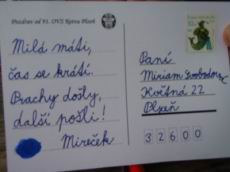 Pozdrav od
Milá máti,
čas se krátí.
Prachy došly,
další pošli!
Mireček
Paní
Miriam Svobodová
Květná 22
Plzeň
32600